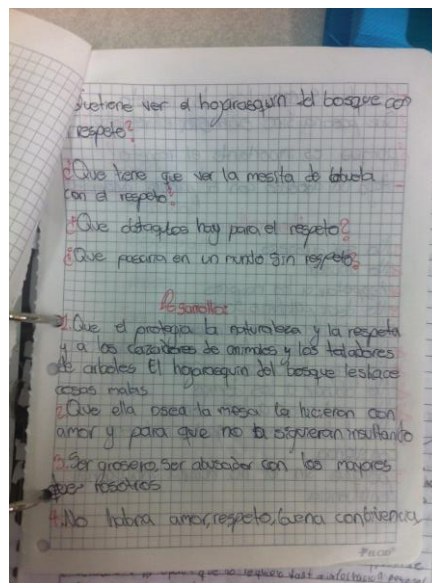 que tiene ver el hojarasquin del bosque con
respeto?
¿Que tiene que ver la mesita de la abuela
con el respeto?
¿Que obstaqulos hay para el respeto?
¿Que pasaria en un mundo sin respeto?
Desarrollo
1. Que el protegia la naturaleza y la respeta
y a los cazadores de animales y los taladores
de arboles El hojarasquin del bosque les hace
cosas malas
2. Que ella osea la mesa la hicieron con
amor y para que no la siguieran insultando
3. Ser grosero, Ser abusador con los mayores
que nosotros
4. No habria amor, respeto, buena conbivencia